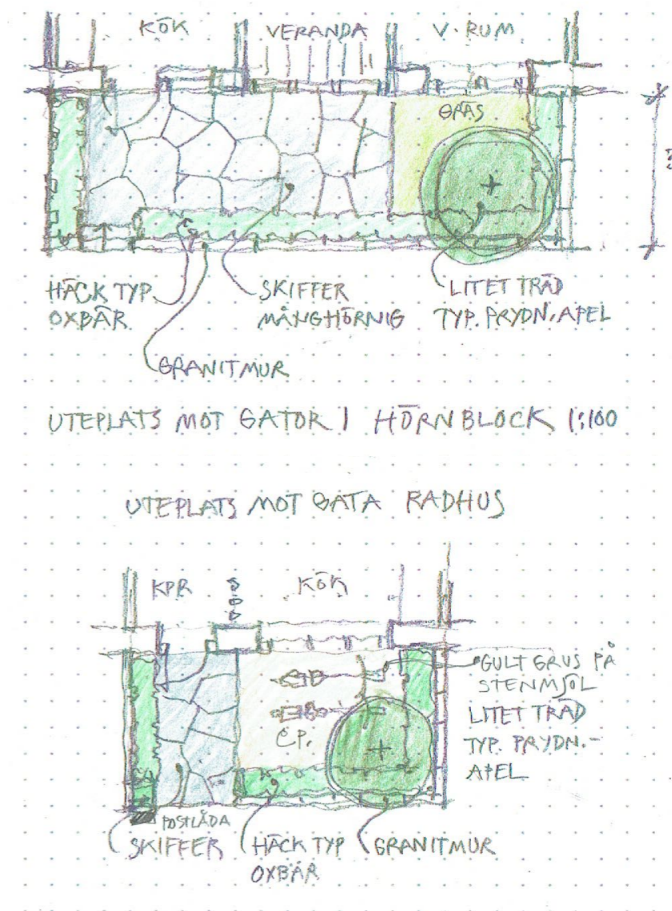 KÖK
VERANDA
V.RUM
GRÄS
HÄCK TYP
OXBÄR
SKIFFER
MÅNGHÖRNIG
LITET TRÄD
TYP. PRYDN.APEL
GRANITMUR
UTEPLATS MOT GATOR I HÖRNBLOCK 1:100
UTEPLATS MOT GATA RADHUS
KPR
KÖK
C.P.
GULT GRUS PÅ
STENMJÖL
LITET TRÄD
TYP. PRYDN.-
APEL
POSTLÅDA
SKIFFER
HÄCK TYP
OXBÄR
GRANITMUR